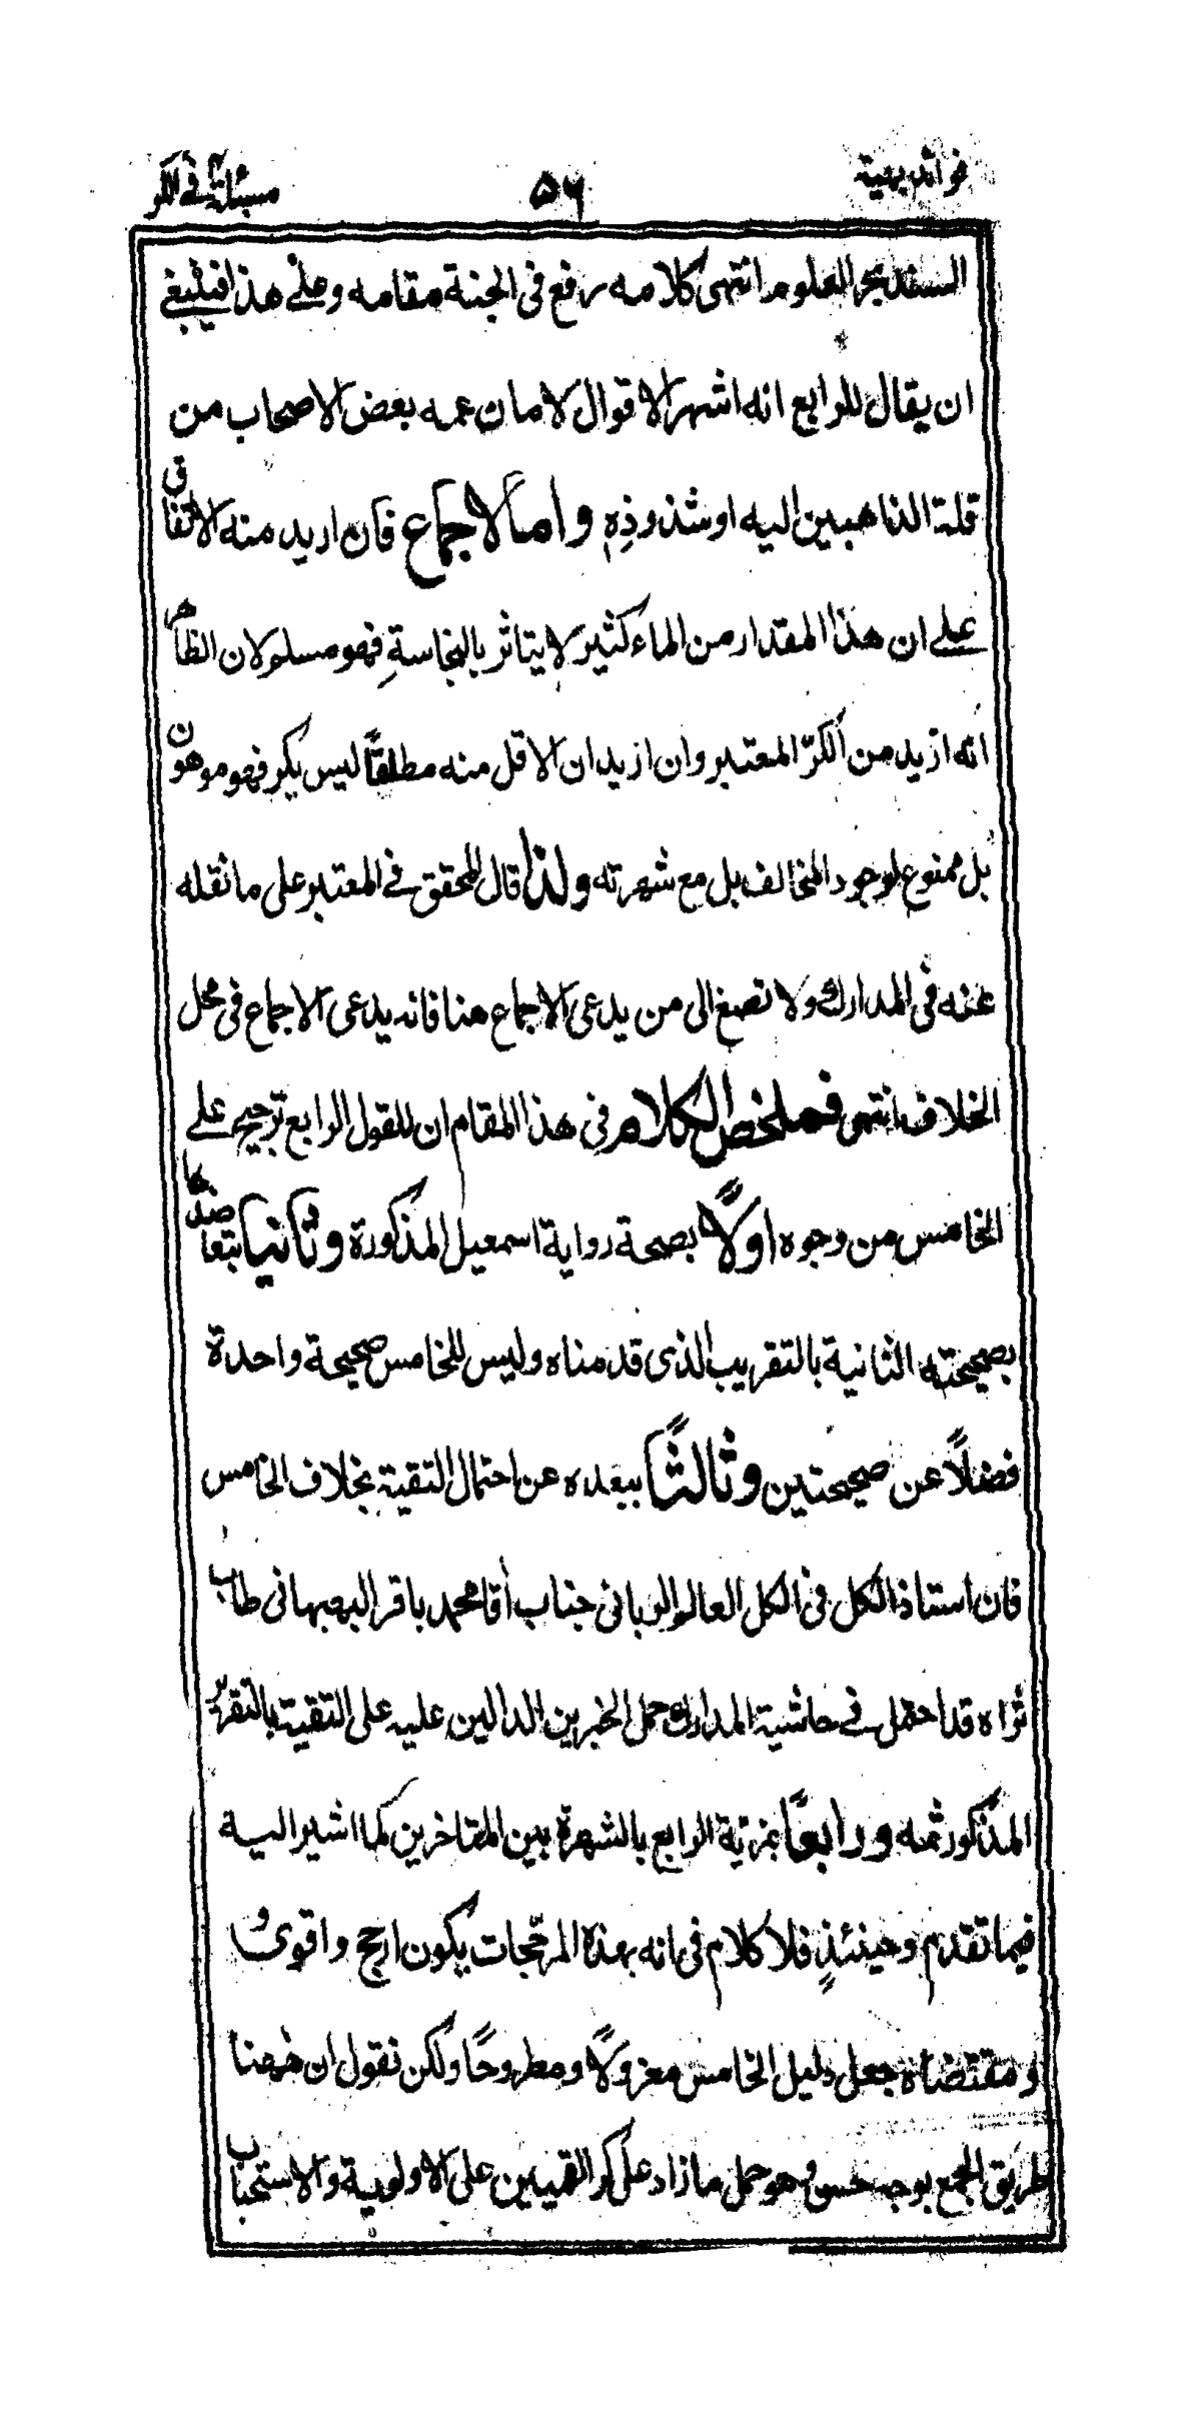 فوائد بهية ۵۶ مسئلة فى الكر
السند بحر العلوم انتهى كلامه رفع فى الجنة مقامه وعلى هذا فينبغي
ان يقال للرابع انه اشهر الاقوال لا ما زعمه بعض الاصحاب من
قلة الذاهبين اليه او شذوذه واما الاجماع فان اريد منه الاتفاق
على ان هذا المقدار من الماء كثير لا يتاثر بالنجاسة فهو مسلم لان الظاهر
انه ازيد من الكرّ المعتبر وان اريد ان الاقل منه مطلقًا ليس بكر فهو موهون
بل ممنوع لوجود المخالف بل مع شهرته ولذا قال المحقق فى المعتبر على ما نقله
عنه فى المدارك ولا تصغ الى من يدعى الاجماع هنا فانه يدعى الاجماع فى محل
الخلاف انتهى فملخص الكلام فى هذا المقام ان للقول الرابع ترجيح على
الخامس من وجوه اولًا بصحة رواية اسمعيل المذكورة وثانيا بتعاضدها
بصحيحته الثانية بالتقريب الذى قدمناه وليس للخامس صحيحة واحدة
فضلًا عن صحيحتين وثالثًا ببعده عن احتمال التقية بخلاف الخامس
فان استاذ الكل فى الكل العالم الربانى جناب آقا محمد باقر البهبهانى طاب
ثراه قد احتمل فى حاشية المدارك حمل الخبرين الدالين عليه على التقية بالتقرير
المذكور ثمه ورابعًا بمزية الرابع بالشهرة بين المتاخرين كما اشير اليه
فيما تقدم وحينئذٍ فلا كلام فى انه بهذه المرجّحات يكون ارجح واقوى و
ومقتضاه جعل دليل الخامس معزولًا ومطروحًا ولكن نقول ان ههنا
طريق الجمع بوجه حسن وهو حمل ما زاد على كر القميين على الاولوية والاستحباب